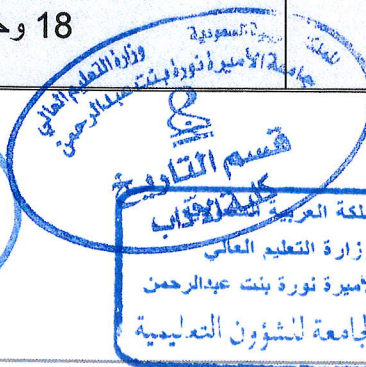 18
المملكة العربية السعودية
وزارة التعليم العالي
جامعة الأميرة نورة بنت عبدالرحمن
قسم التاريخ
كلية الآداب
لكة العربية
زارة التعليم العالي
لأميرة نورة بنت عبدالرحمن
لجامعة للشؤون التعليمية